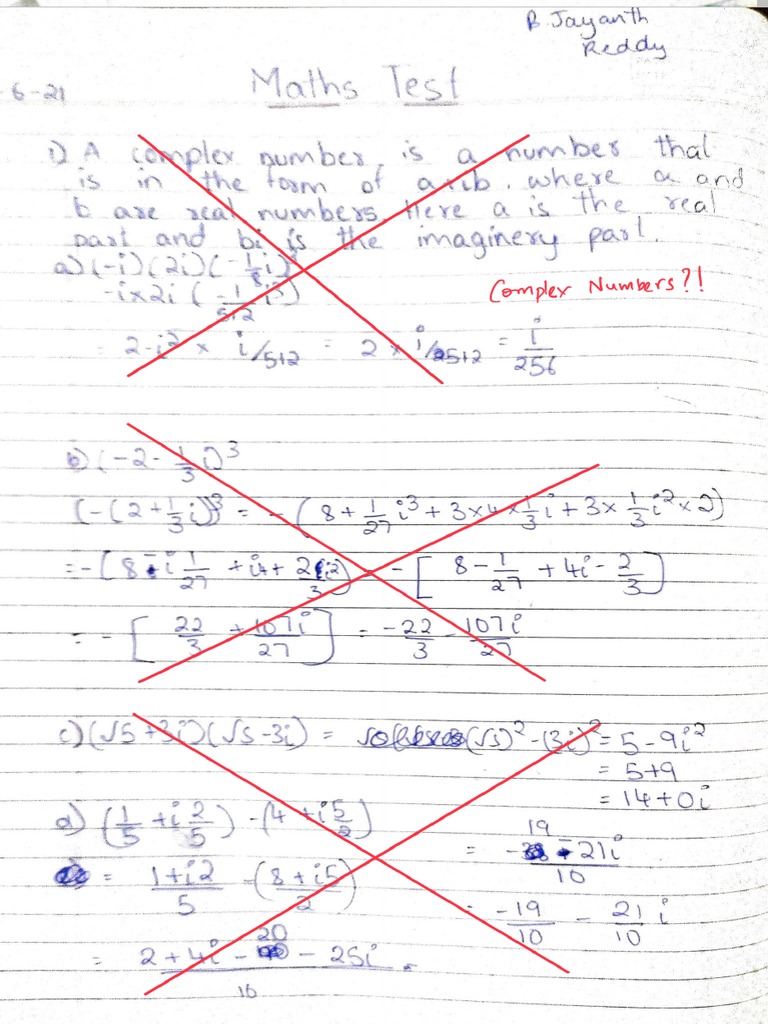 B. Jayanth
Reddy
-6-21
Maths Test
1) A complex number, is a number that
is in the form of a+ib. where a and
b are real numbers. Here a is the real
part and bi is the imaginery part.
a) (-i) (2i) (-1/8 i)³
-i×2i (-1/5+2 i³)
Complex Numbers?!
= 2-i² × i/5+2 = 2 × i/25+2 = i/256
b) (-2 - 1/3 i)³
(-(2+1/3 i))³ = -(8 + 1/27 i³ + 3×4×1/3 i + 3× 1/3 i² ×2)
= -[8 - i 1/27 + i4 + 2i²/3] = -[8 - 1/27 + 4i - 2/3]
= -[22/3 + 107i/27] = -22/3 - 107i/27
c) (√5 +3i) (√5 -3i) = (√5)² - (3i)² = 5 - 9i²
= 5+9
= 14+0i
d) (1/5 + i 2/5) - (4 + i 5/2)
= 1+i2/5 - (8+i5/2)
= 2 + 4i - 20 - 25i/10
= -19 - 21i/10
= -19/10 - 21/10 i